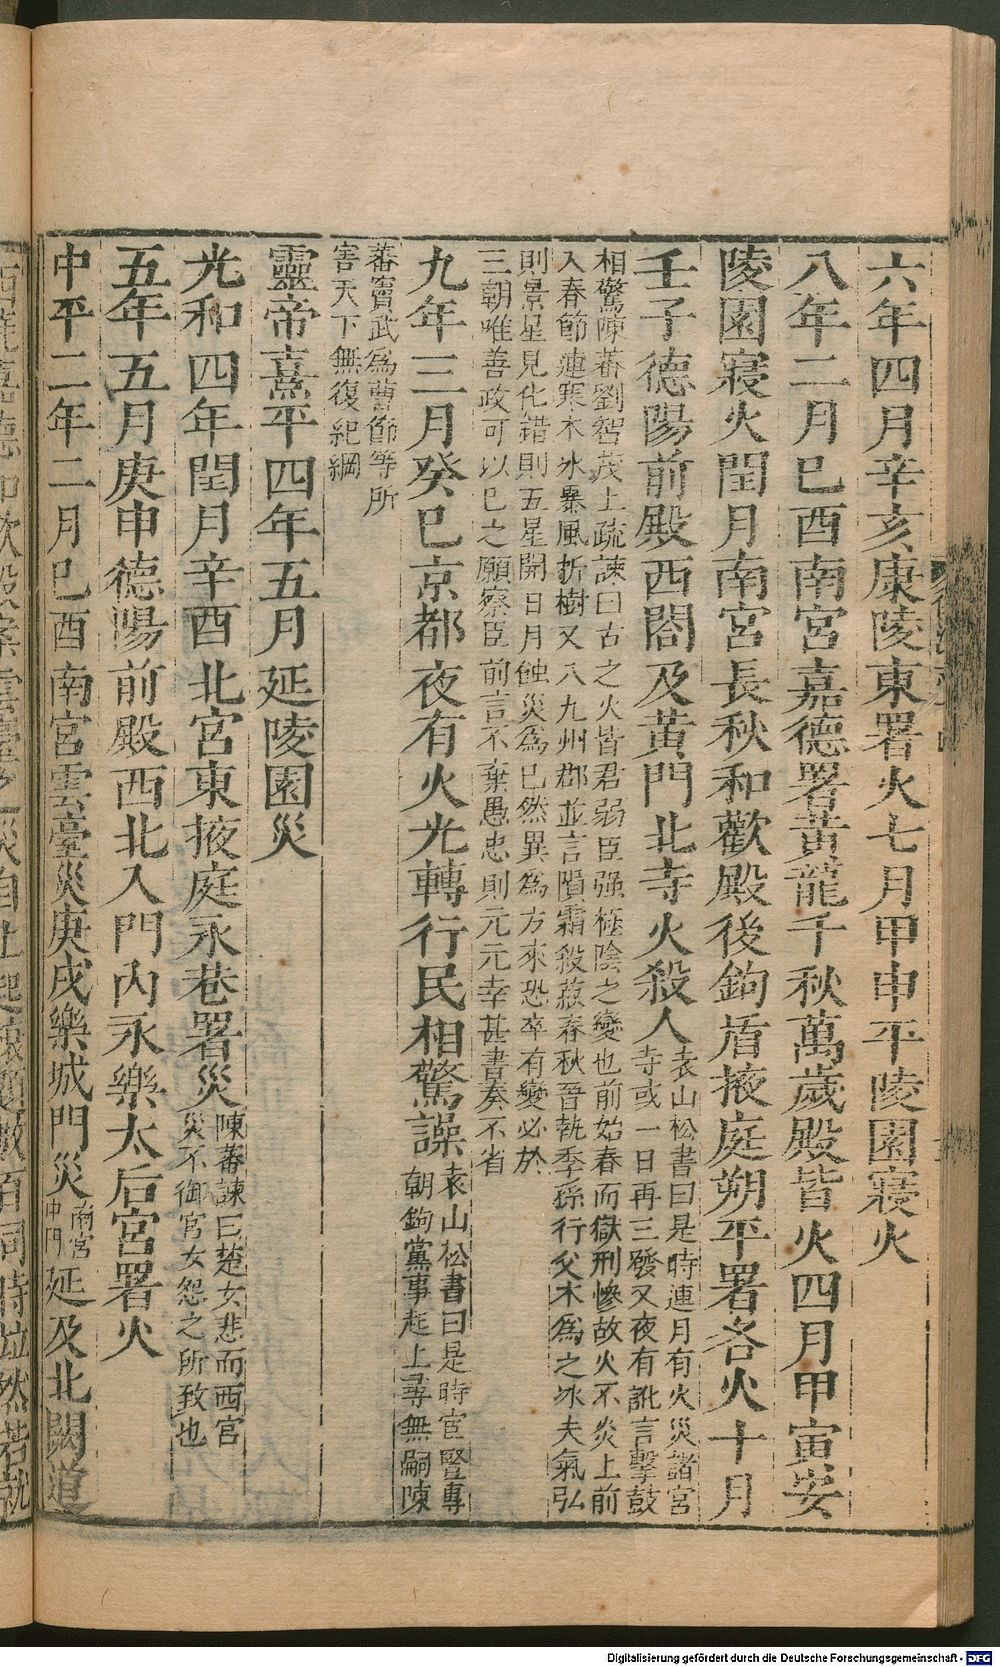 六年四月辛亥康陵東署火七月甲申平陵園寢火
八年二月己酉南宮嘉德署黃龍千秋萬歲殿皆火四月甲寅安
陵園寢火閏月南宮長秋和歡殿後鉤盾掖庭朔平署各火十月
壬子德陽前殿西閤及黃門北寺火殺人
袁山松書曰是時連月有火災諸宮
寺或一日再三發又夜有訛言擊鼓
相驚陳蕃劉智茂上疏諫曰古之火皆君弱臣强極陰之變也前始春而獄刑慘故火不炎上前
入春節連寒木冰暴風折樹又八九州郡並言隕霜殺菽春秋晉執季孫行父木為之冰夫氣弘
則景星見化錯則五星開日月蝕災為已然異為方來恐卒有變必於
三朝唯善政可以已之願察臣前言不棄愚忠則元元幸甚書奏不省
九年三月癸巳京都夜有火光轉行民相驚譟
袁山松書曰是時宦豎專
朝鉤黨事起上尋無嗣陳
蕃竇武為曹節等所
害天下無復紀綱
靈帝熹平四年五月延陵園災
光和四年閏月辛酉北宮東掖庭永巷署災
陳蕃諫曰楚女悲而西宮
災不御宮女怨之所致也
五年五月庚申德陽前殿西北入門內永樂太后宮署火
中平二年二月己酉南宮雲臺災庚戌樂城門災
南宮
中門
延及北闕道
西燒嘉德和歡殿案雲臺之災自上起榱題數百同時並然若就
Digitalisierung gefördert durch die Deutsche Forschungsgemeinschaft - DFG